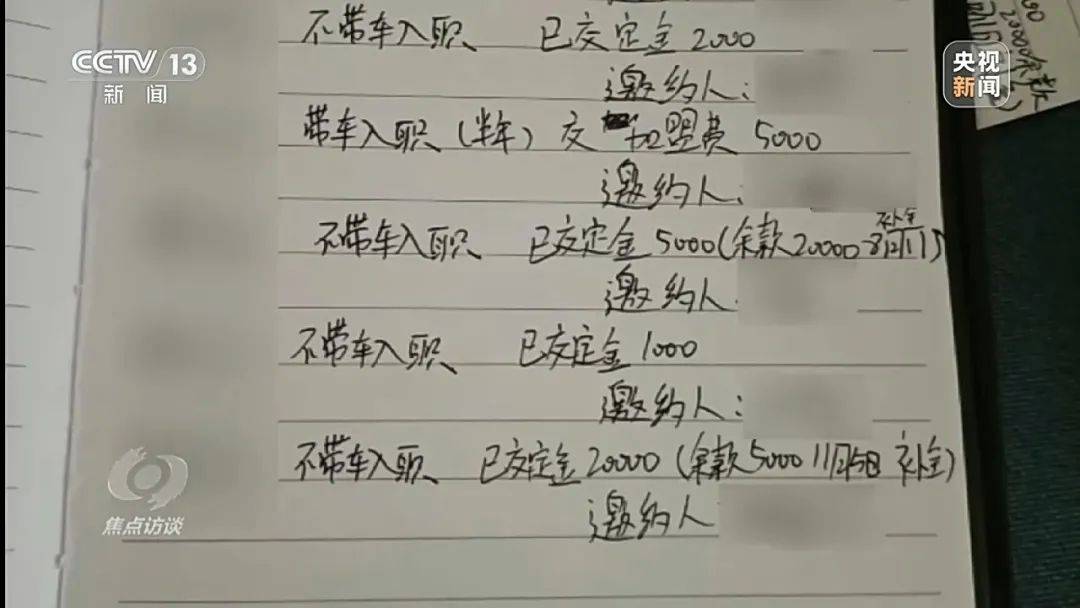 不带车入职 已交定金 2000
CCTV 13
新闻
央视
新闻
邀约人:
带车入职(半年) 交 加盟费 5000
邀约人:
不带车入职 已交定金 5000(余款20000
补全
邀约人
不带车入职 已交定金 1000
邀约人:
不带车入职 已交定金 20000 (余款5000 11月5日 补全)
邀约人
焦点访谈